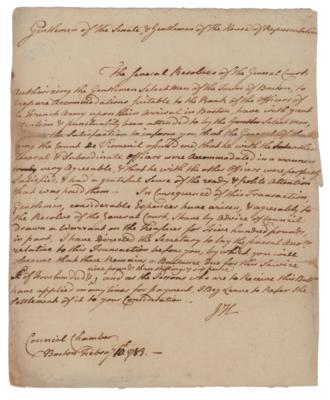 Gentlemen of the Senate, & Gentlemen of the House of Representatives
The several Resolves of the General Court
Authorizing the Gentlemen Selectmen of the Town of Boston, to
prepare Accomodations suitable to the Rank of the officers of
French Army upon their arrival in Boston, have with great
& punctuality been attended to by the Selectmen
the Satisfaction to inform you that the General of that
Army the Count de Viomenil informed me that he with the
General & Subordinate officers were Accomodated in a manner
very Agreeable, & that he with the other officers were perfectly
satisfied, & had a grateful sense of the ready & polite attention
that was paid them. In Consequence of this Transaction
Gentlemen, considerable Expences have arisen, & agreeably to
the Resolve of the General Court, I have by Advice of Council
drawn a Warrant on the Treasurer for three hundred pounds,
in part, I have Directed the Secretary to lay the several
relative to this Transaction before you, by which you will
observe that there Remains a Ballance due for this Service
nine pounds three shillings &
& as the Persons who are to Receive this
have applied many times for payment, I Beg Leave to Refer the
settlement of it to your Consideration.
JH
Council Chamber
Boston Feby 10th 1783